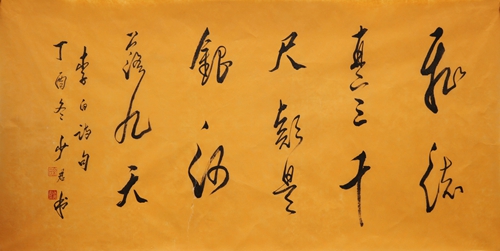 飛流
直下三千
尺疑是
銀河
落九天
李白詩句
丁酉冬少君书